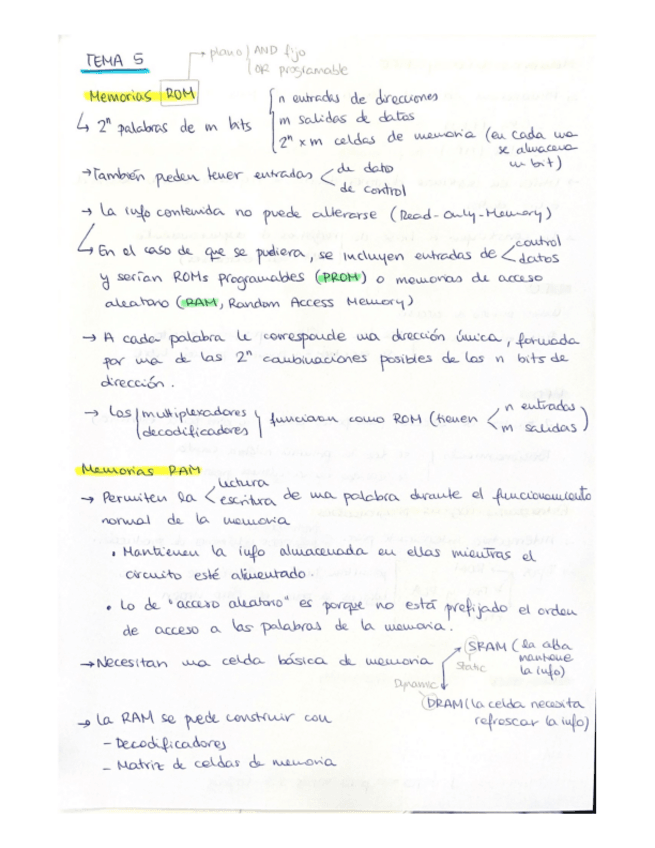 TEMA 5
plano AND fijo
OR programable
Memorias ROM
↳ 2ⁿ palabras de m bits
n entradas de direcciones
m salidas de datos
2ⁿ x m celdas de memoria (en cada una se almacena un bit)
→ También pueden tener entradas < de dato
de control
→ La info contenida no puede alterarse (Read-Only-Memory)
↳ En el caso de que se pudiera, se incluyen entradas de < control
datos
y serían ROMs programables (PROM) o memorias de acceso
aleatorio (RAM, Random Access Memory)
→ A cada palabra le corresponde una dirección única, formada
por una de las 2ⁿ combinaciones posibles de los n bits de
dirección.
→ Los multiplexadores
decodificadores
funcionan como ROM (tienen < n entradas
m salidas)
Memorias RAM
→ Permiten la < lectura
escritura de una palabra durante el funcionamiento
normal de la memoria
• Mantienen la info almacenada en ellas mientras el
circuito esté alimentado.
• Lo de "acceso aleatorio" es porque no está prefijado el orden
de acceso a las palabras de la memoria.
→ Necesitan una celda básica de memoria
SRAM (la
mantiene
la info)
Static
Dynamic
DRAM (la celda necesita
refrescar la info)
→ La RAM se puede construir con
- Decodificadores
- Matriz de celdas de memoria